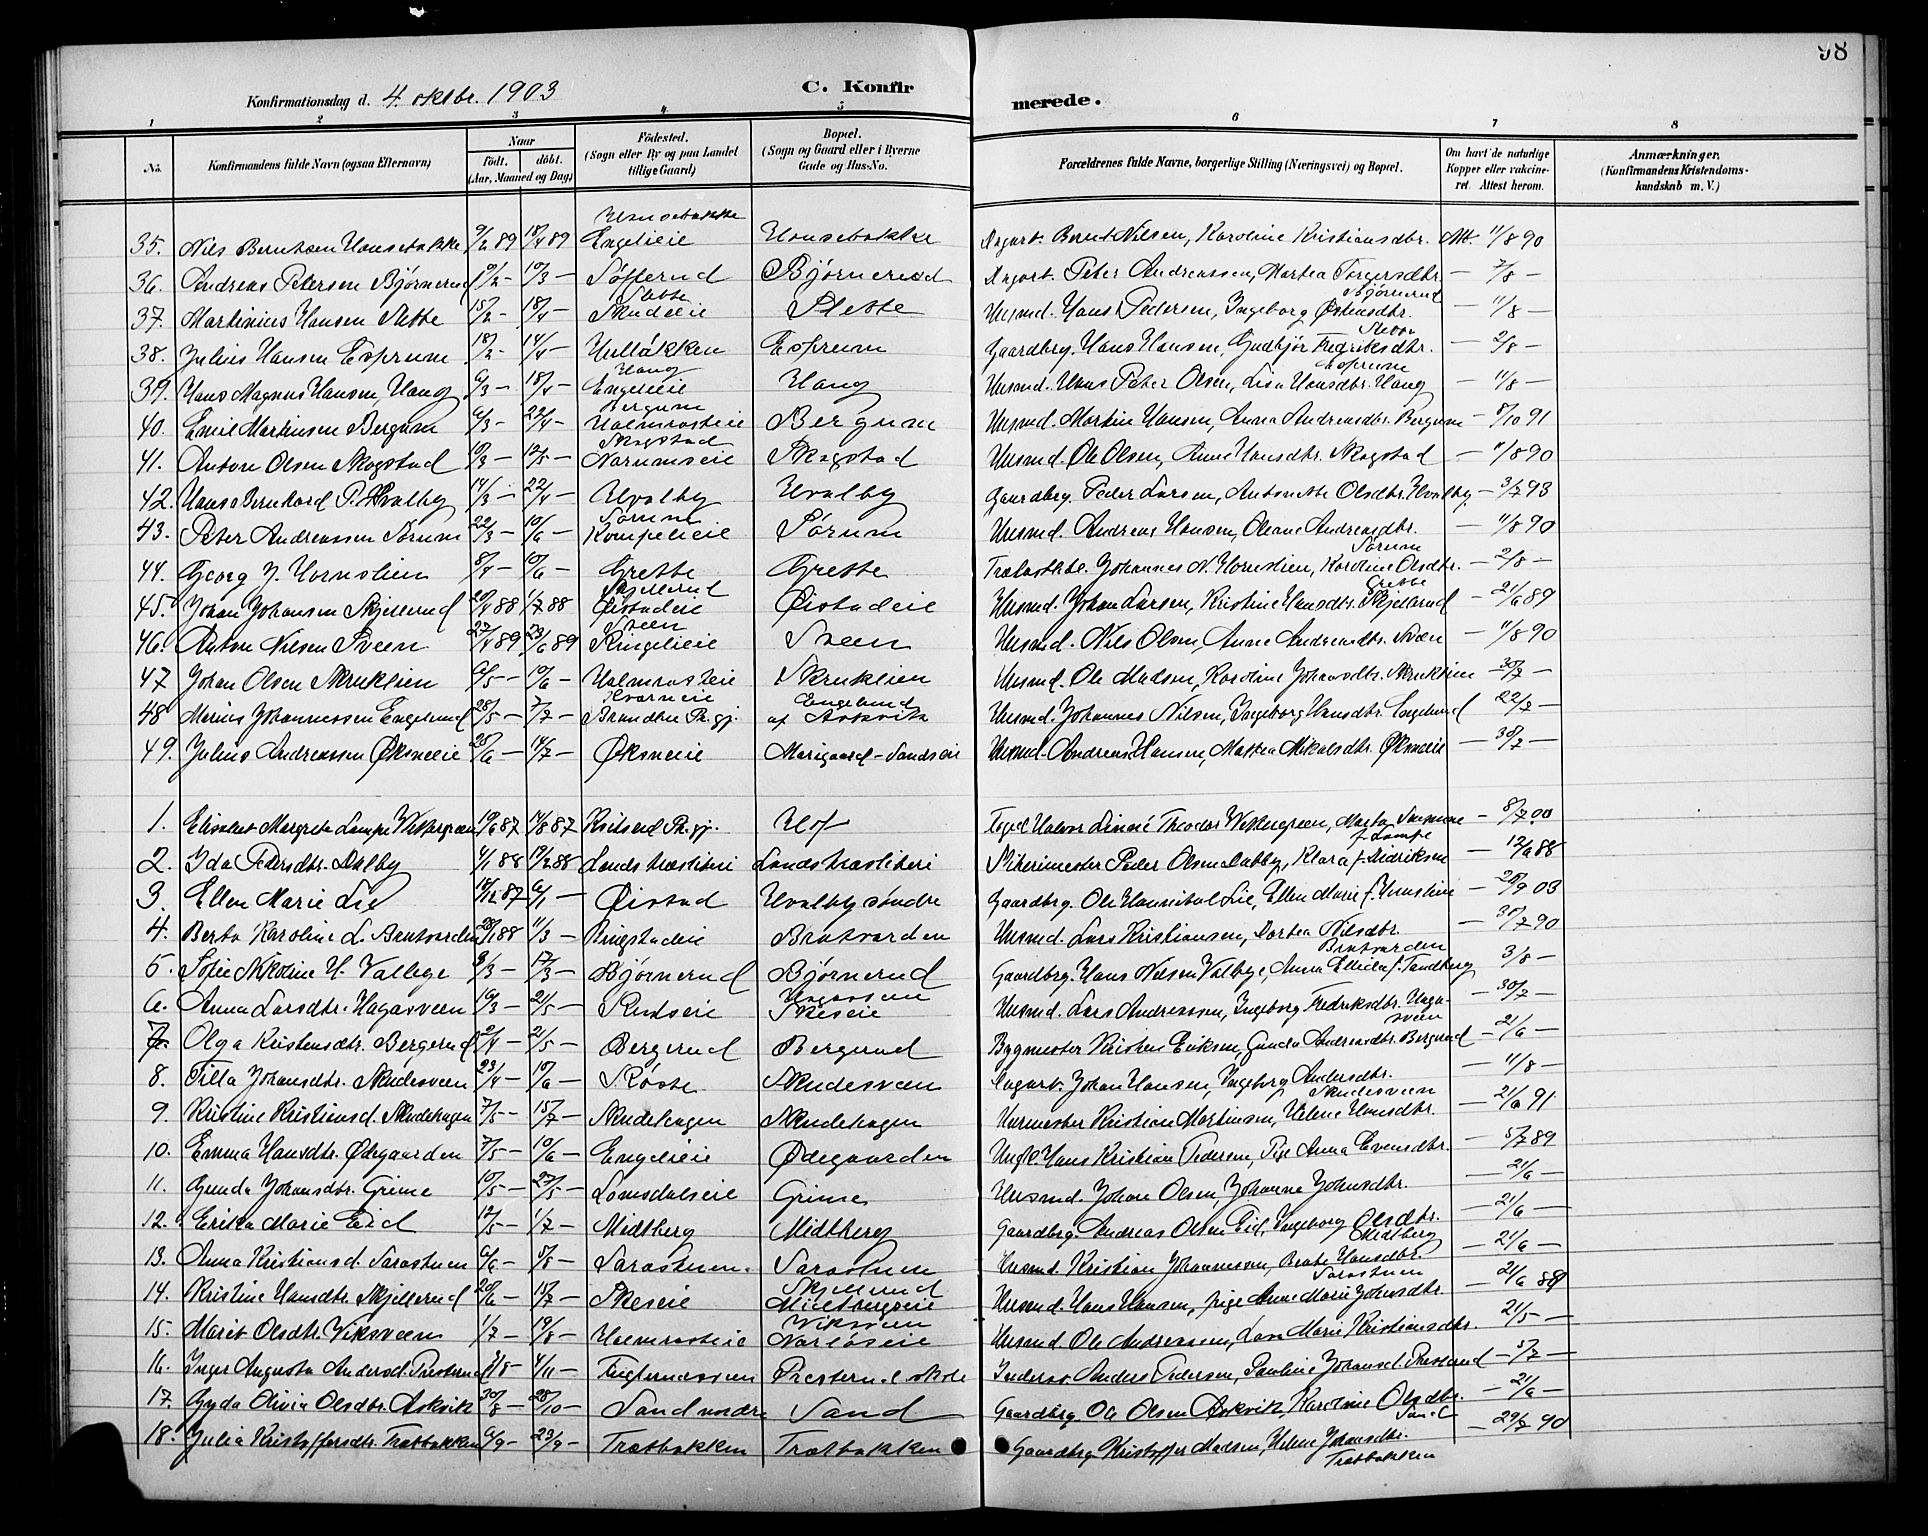 98
Konfirmationsdag d. 4. oktbr. 1903 C. Konfirmerede.
1 2 3 4 5 6 7 8
No. Konfirmandens fulde Navn (ogsaa Efternavn) Naar födt. döbt. (Aar, Maaned og Dag) Födested. (Sogn eller By og paa Landet tillige Gaard) Bopæl. (Sogn og Gaard eller i Byerne Gade og Hus-No. Forældrenes fulde Navne, borgerlige Stilling (Næringsvei) og Bopæl. Om havt de naturlige Kopper eller vakcineret. Attest herom. Anmærkninger. (Konfirmandens Kristendomskundskab m. V.)
35. Nils Berntsen Hansebakke 9/2 89 18/4 89 Hansebakke Engelieie Hansebakke Dagarb. Bernt Nilsen, Karoline Kristiansdtr. Att. 11/8 90
36. Andreas Petersen Bjørnerud 10/2 — 10/3 — Søflerud Bjørnerud Dagarb. Peter Andreassen, Martea Torgersdtr. Bjørnerud — 7/8 —
37. Martinius Hansen Slette 15/2 — 18/4 — Slette Skudeie Slette Husmd. Hans Pedersen, Ingeborg Østensdtr. Slette — 11/8 —
38. Julius Hansen Esprum 18/2 — 14/4 — Hulløkken Esprum Gaardbrg. Hans Hansen, Gudbjør Fredriksdtr. Esprum — 2/8 —
39. Hans Magnus Hansen Haug 6/3 — 18/4 — Haug Engelieie Haug Husmd. Hans Peter Olsen, Lisa Hansdtr. Haug — 11/8 —
40. Emil Martinsen Bergum 6/3 — 22/4 — Bergum Halmrasteie Bergum Husmd. Martin Hansen, Anna Andreasdtr. Bergum — 8/10 91
41. Anton Olsen Skogstad 10/3 — 12/5 — Skogstad Narumseie Skogstad Husmd. Ole Olsen, Anne Hansdtr. Skogstad — 11/8 90
42. Hans Bernhard P. Hvalby 14/3 — 22/4 — Hvalby Hvalby Gaardbrg. Peder Larsen, Antonette Olsdtr. Hvalby — 3/7 93
43. Peter Andreassen Sørum 22/3 — 10/6 — Sørum Kompelieie Sørum Husmd. Andreas Hansen, Oleane Andreasdtr. Sørum — 11/8 90
44. Georg J. Hornslien 8/4 — 10/6 — Grette Grette Trælasthdl. Johannes N. Hornslien, Karoline Olsdtr. Grette — 2/8 —
45. Johan Johansen Skjellerud 20/4 88 1/7 88 Skjellerud Øistadeie Øistadeie Husmd. Johan Larsen, Kristine Hansdtr. Skjellerud — 21/6 89
46. Anton Nilsen Sveen 27/4 89 23/6 89 Sveen Ringelieie Sveen Husmd. Nils Olsen, Anne Andreasdtr. Sveen — 11/8 90
47 Johan Olsen Skruklien 6/5 — 10/6 — Halmrasteie Skruklien Husmd. Ole Madsen, Karoline Johansdtr. Skruklien — 30/7 —
48 Marius Johannessen Engelund 28/5 — 7/7 — Kvarneie Brandbu Pr.gj. Engelund af Askvik Husmd. Johannes Nilsen, Ingeborg Hansdtr. Engelund — 22/7 —
49. Julius Andreassen Øksneeie 25/6 — 14/7 — Øksneeie Marigaard - Sandseie Husmd. Andreas Hansen, Mathea Mikalsdtr. Øksneeie — 30/7 —
1. Elisabet Margrete Lampe Wettergreen 19/6 87 14/8 87 Hof Foged Halvor Linné Theodor Wettergreen, f. Lampe — 8/7 00
2. Ida Pedersdtr. Dalby 4/1 88 19/2 88 Lands træsliberi Lands træsliberi Peder Olsen Dalby, Klara f. Didriksen — 12/6 88
3. Ellen Marie Lie 14/12 87 6/1 — Øistad Hvalby søndre Gaardbrg. Ole Hannibal Lie, Ellen Marie f. — 28/9 03
4. Berta Karoline L. Bratvarden 28/1 88 11/3 — Ringstadeie Bratvarden Husmd. Lars Kristiansen, Dortea Nilsdtr. Bratvarden — 30/7 90
5. Sofie Nikoline H. Valbye 3/3 — 17/3 — Bjørnerud Bjørnerud Gaardbrg. Hans Nilsen Valbye, Anna Elleda f. Tandberg — 3/8 —
6. Anna Larsdtr. Hagasveen 16/3 — 21/5 — Rudseie Hagasveen Skeseie Husmd. Lars Andreassen, Ingeborg Fredriksdtr. Hagasveen — 30/7 —
7. Olga Kristensdtr. Bergerud 2/4 — 21/5 — Bergerud Bergerud Bygmester Kristen Eriksen, Gunda Andreasdtr. Bergerud — 21/6 —
8. Tilla Johansdtr. Skudesveen 23/4 — 10/6 — Røste Skudesveen Dagarb. Johan Hansen, Ingeborg Andersdtr. Skudesveen — 11/8 —
9. Kristine Kristiansd. Skudehagen 7/5 — 15/7 — Skudehagen Skudehagen Murmester Kristian Martinsen, Helene Hansdtr. — 21/6 91
10. Emma Hansdtr. Ødegaarden 7/5 — 10/6 — Engelieie Ødegaarden Ungk. Hans Kristian Pedersen, Pige Anna Evensdtr. — 5/7 89
11. Gunda Johansdtr. Grime 10/5 — 27/5 — Lomsdalseie Grime Husmd. Johan Olsen, Johanne Johnsdtr. — 21/6 —
12. Erika Marie Eid 12/5 — 1/7 — Midtberg Midtberg Gaardbrg. Andreas Olsen Eid, Ingeborg Olsdtr. Midtberg — 21/6 —
13. Anna Kristiansd. Sarastuen 6/6 — 5/8 — Sarastuen. Sarastuen Husmd. Kristian Johannessen, Beate Hansdtr. Sarastuen — 21/6 —
14. Kristine Hansdtr. Skjellerud 20/6 — 15/7 — Skeseie Skjellerud Midtbergseie Husmd. Hans Hansen, pige Anne Marie Johnsdtr. — 21/6 89
15. Marit Olsdtr. Viksveen 1/7 — 19/8 — Halmrasteie Viksveen Husmd. Ole Andreassen, Marie Kristiansdtr. — 21/5 —
16. Inger Augusta Andersd. Præsterud 4/11 — Fuglernessveen Præsterud skole Anders Pedersen, Pauline Johansd. Præsterud — 5/7 —
17. Gyda Olivia Olsdtr. Askvik 30/8 — 28/10 — Sand nordre Sand Gaardbrg. Ole Olsen Askvik, Karoline Olsdtr. Sand — 21/6 —
18. Julia Kristoffersdtr. Trætbakken 6/9 — 23/9 — Trætbakken Trætbakken Gaardbrg. Kristoffer Madsen, Helene Johansdtr. Trætbakken — 29/7 90